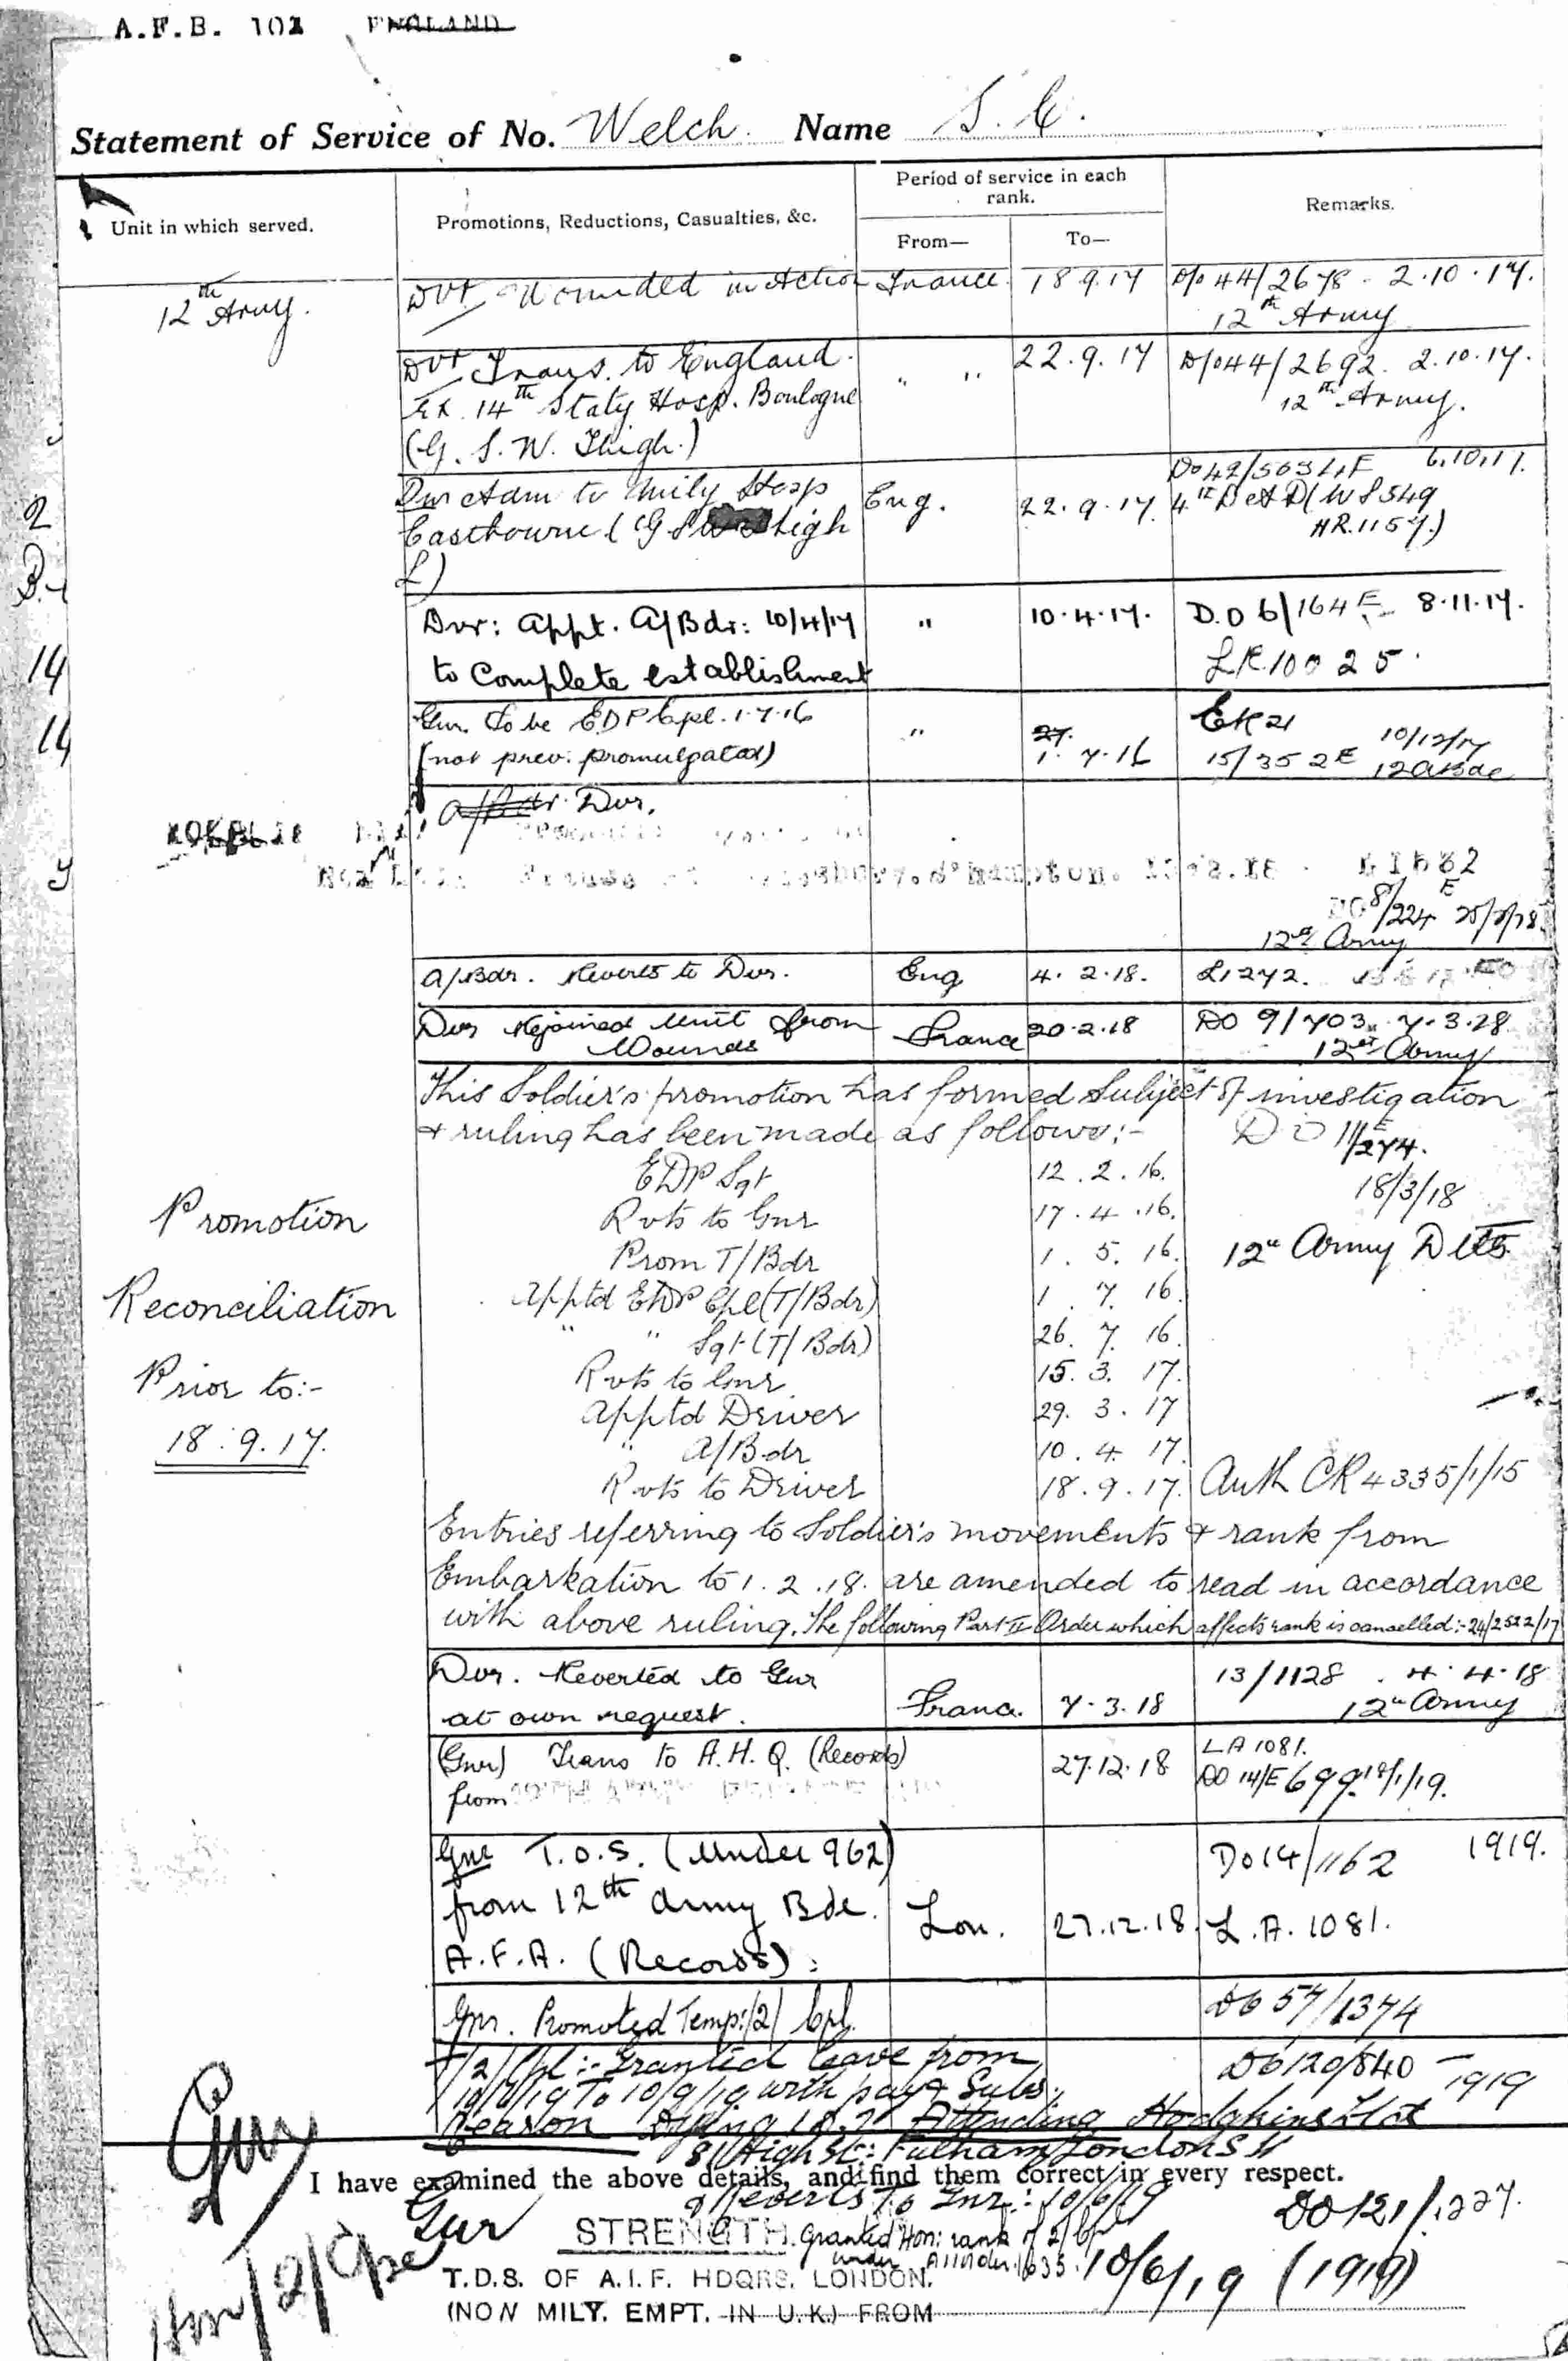 A.F.B. 103 ENGLAND
Statement of Service of No. Welch. Name S. C.
Unit in which served.
Promotions, Reductions, Casualties, &c.
Period of service in each rank.
From—
To—
Remarks.
12th Army.
Dvr Wounded in Action France 18 9.17 D/o 44/2678 - 2.10.17.
12th Army
Dvr Trans. to England
" " 22.9.17 D/o 44/2692. 2.10.17.
Ex. 14th Staty Hosp. Boulogne
12th Army.
(G. S. W. Thigh.)
Dvr Adm to Mily Hosp
Eastbourne (G S W Thigh
L)
Eng. 22.9.17.
6.10.17.
Dvr: Appt. A/Bdr: 10/4/17 " 10.4.17. D.O 6/164 E 8.11.17.
to Complete establishment
LR.10025.
Gnr. To be EDP Cpl. 1.7.16
(not prev: promulgated)
" 27. 1. 7.16
15/352 E 10/12/17
A/Bdr Dvr.
DO 8/224 E 25/2/18
12th Army
A/Bdr. Reverts to Dvr. Eng 4.2.18. L1272.
Dvr Rejoined Unit from Wounds France 20.2.18 DO 9/703 7.3.18
12th Army
This Soldier's promotion has formed subject of investigation
& ruling has been made as follows:-
DO 11/274. E
18/3/18
12th Army
Promotion
Reconciliation
Prior to:-
18.9.17.
EDP Sgt 12.2.16.
Rvts to Gnr 17.4.16.
Prom T/Bdr 1.5.16.
Apptd EDP Cpl (T/Bdr) 1.7.16.
" " Sgt (T/Bdr) 26.7.16.
Rvts to Gnr 15.3.17.
Apptd Driver 29.3.17
" A/Bdr 10.4.17.
Rvts to Driver 18.9.17. Auth CR 4335/1/15
Entries referring to Soldier's movements & rank from
Embarkation to 1.2.18. are amended to read in accordance
with above ruling. The following Part II Order which affects rank is cancelled:- 24/2522/17
Dvr. Reverted to Gnr
at own request. France. 7.3.18
13/1128 . 4.4.18
12th Army
(Gnr) Trans to A.H.Q. (Records)
from
27.12.18
LA 1081.
DO 14/E 699
Gnr T.O.S. (Under 962)
from 12th Army Bde.
A.F.A. (Records)
Lon. 27.12.18.
DO 14/1162 1919.
L.A. 1081.
Gnr. Promoted Temp:/2/Cpl.
DO 57/1374
T/2/Cpl:- Granted leave from
10/7/19 To 10/9/19 with pay & Subs.
DO 120/840 - 1919
Reason
Attending
81 High St: Fulham London S W
I have examined the above details, and find them correct in every respect.
Reverts To Gnr: 10/6/19
DO 121/1227.
Gnr
Gnr
STRENGTH
Granted Hon: rank of 2/Cpl
under
10/6/19 (1919)
Hon/2/Cpl
T.D.S. OF A.I.F. HDQRS. LONDON.
(NON MILY. EMPT. IN U.K.) FROM